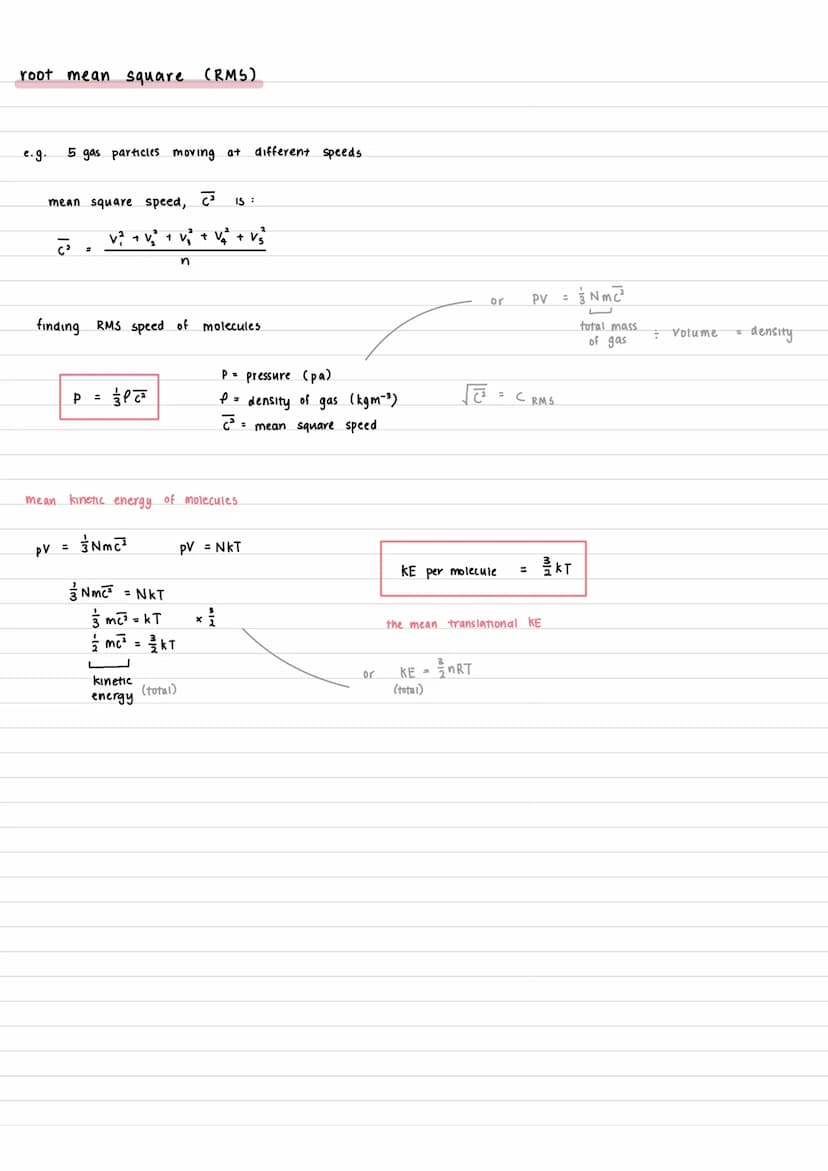 root mean square (RMS)
e.g. 5 gas particles moving at different speeds
mean square speed, c̅² is :
c̅² = (v₁² + v₂² + v₃² + v₄² + v₅²) / n
or PV = ⅓ Nmc̅²
total mass of gas ÷ volume = density
finding RMS speed of molecules
P = ⅓ρc̅²
P = pressure (pa)
ρ = density of gas (kgm⁻³)
c̅² = mean square speed
√c̅² = C RMS
mean kinetic energy of molecules
pV = ⅓Nmc̅² pV = NkT
⅓Nmc̅² = NkT
⅓ mc̅² = kT × 3/2
½ mc̅² = 3/2 kT
kinetic
energy (total)
KE per molecule = 3/2 kT
the mean translational KE
or KE = 3/2 nRT
(total)